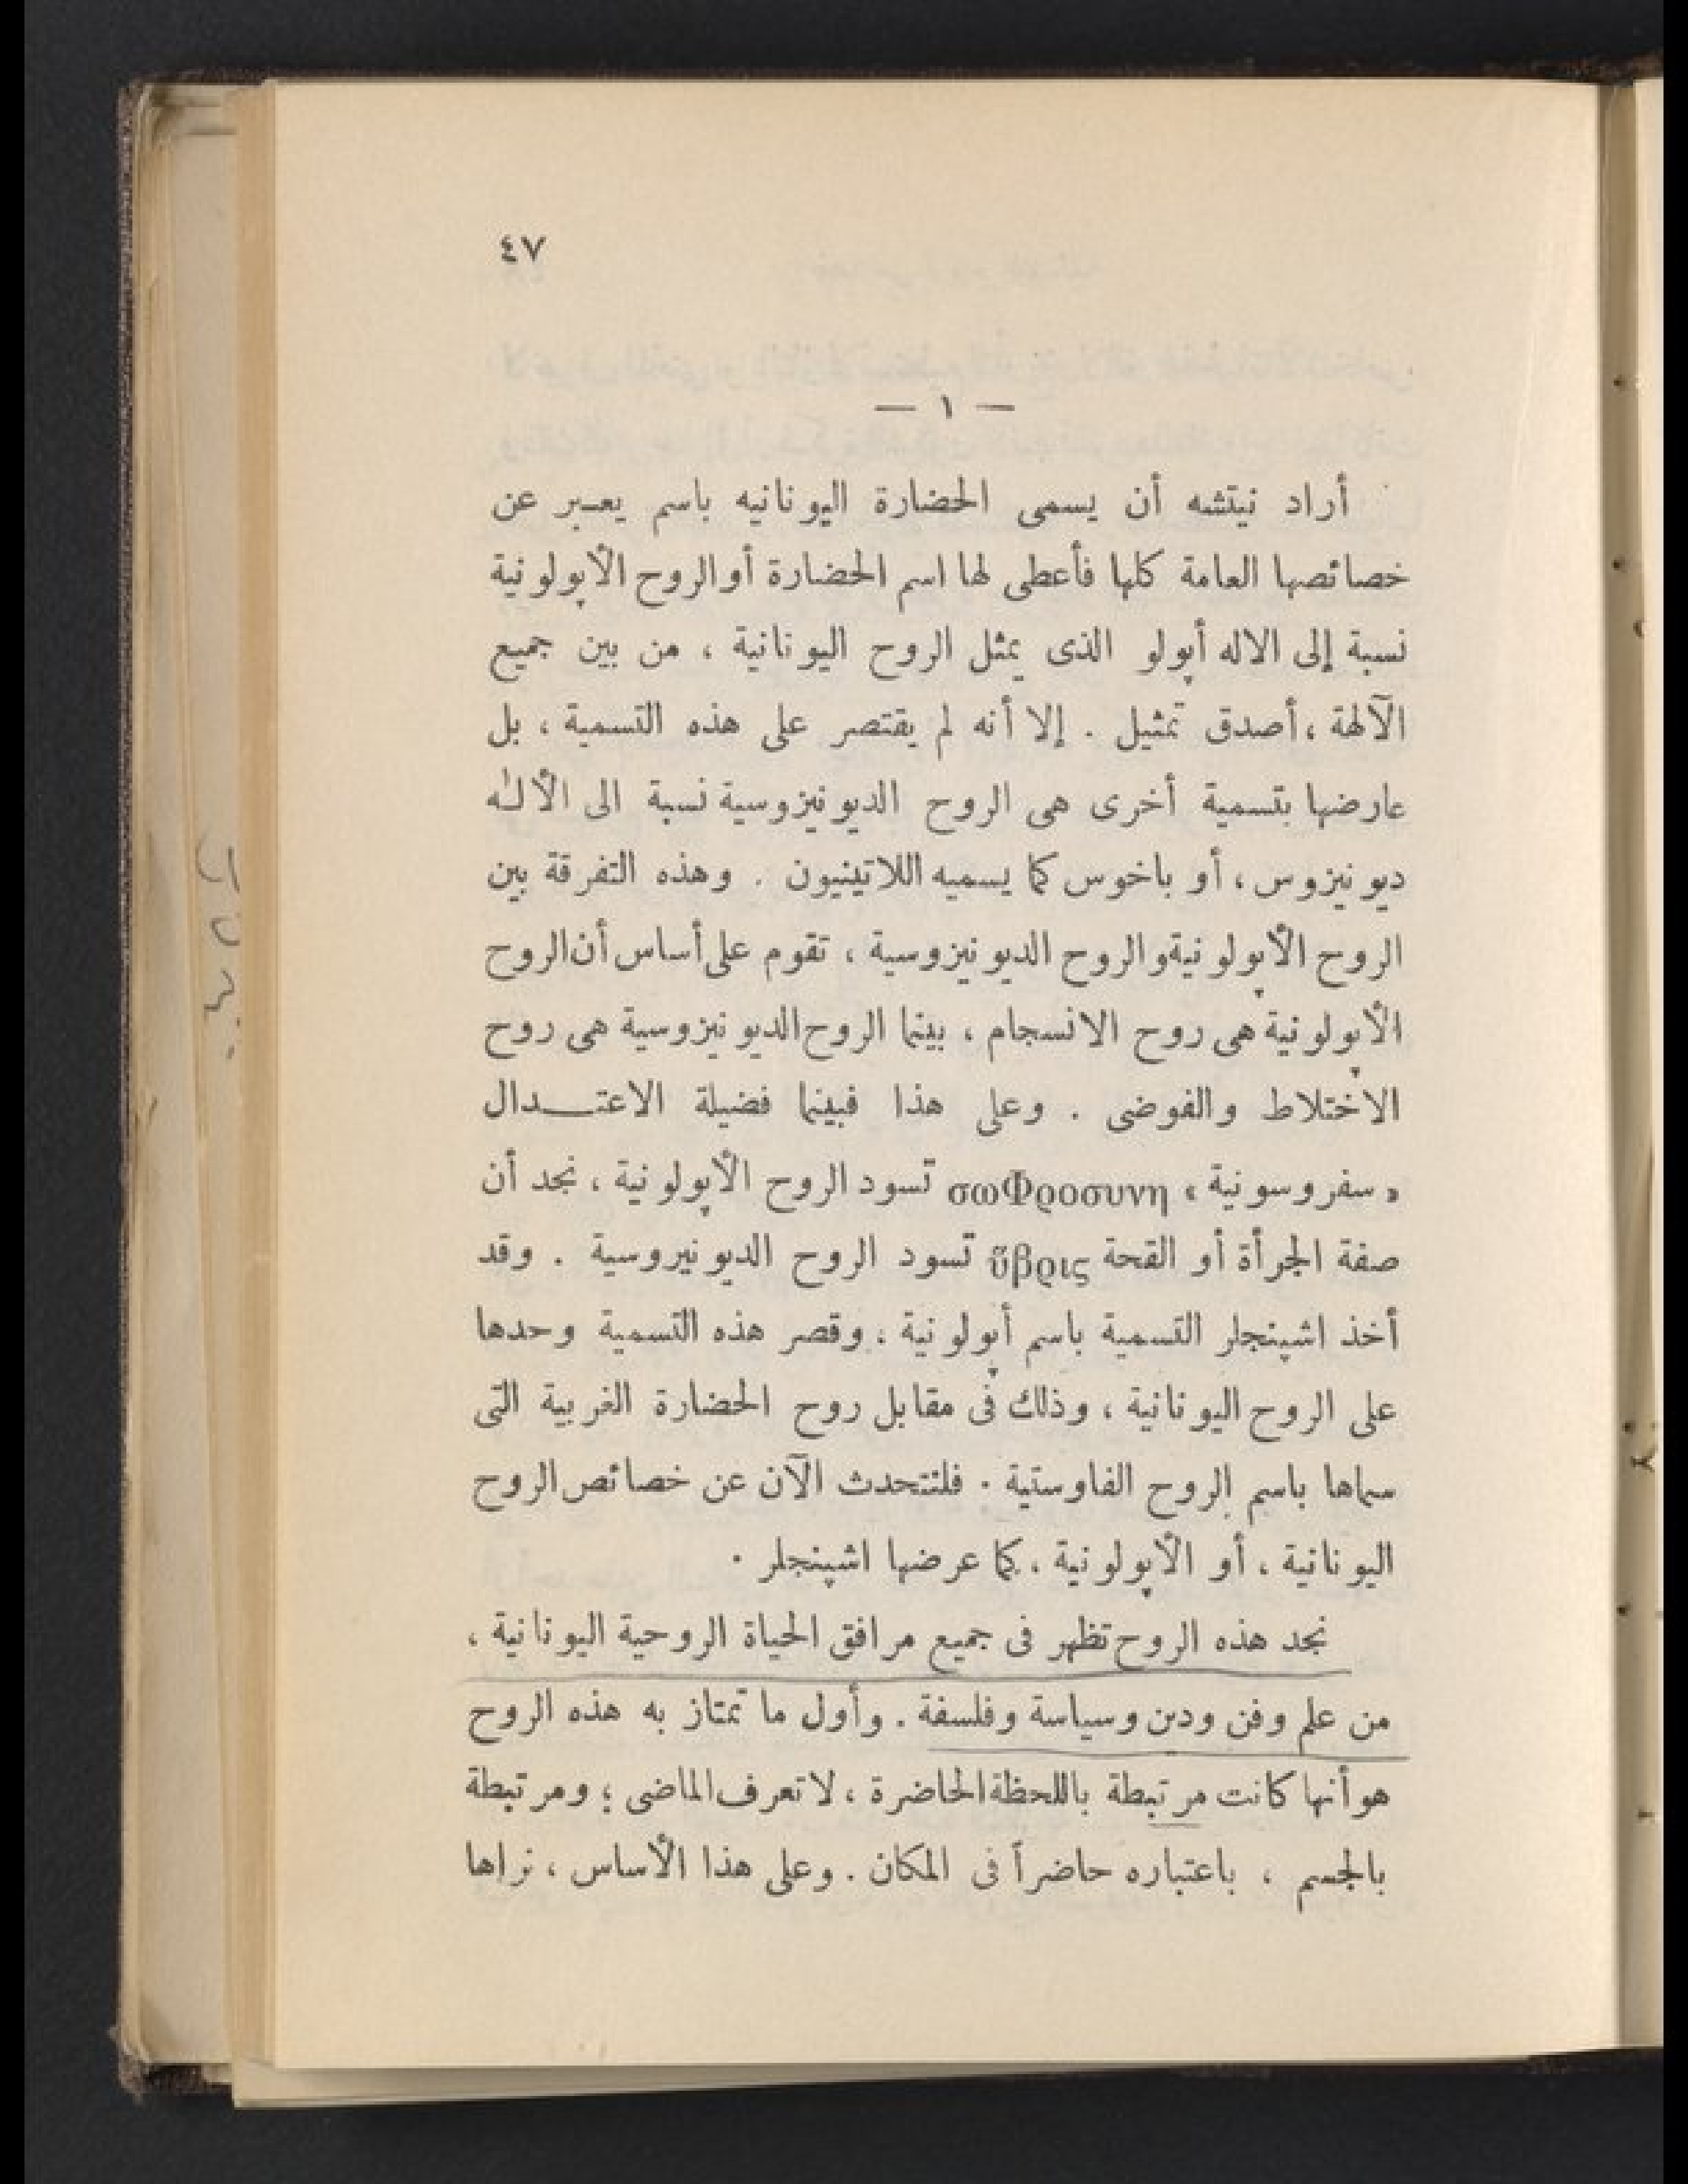 ٤٧
— ١ —
أراد نيتشه أن يسمى الحضارة اليونانيه باسم يعبر عن
خصائصها العامة كلها فأعطى لها اسم الحضارة أو الروح الأپولونية
نسبة إلى الاله أپولو الذى يمثل الروح اليونانية ، من بين جميع
الآلهة ، أصدق تمثيل . إلا أنه لم يقتصر على هذه التسمية ، بل
عارضها بتسمية أخرى هى الروح الديونيزوسية نسبة الى الأله
ديونيزوس ، أو باخوس كما يسميه اللاتينيون . وهذه التفرقة بين
الروح الأپولونية والروح الديونيزوسية ، تقوم على أساس أن الروح
الأپولونية هى روح الانسجام ، بينما الروح الديونيزوسية هى روح
الاختلاط والفوضى . وعلى هذا فبينما فضيلة الاعتــدال
« سفروسونية » σωΦροσυνη تسود الروح الأپولونية ، نجد أن
صفة الجرأة أو القحة ὕβρις تسود الروح الديونيروسية . وقد
أخذ اشپنجلر التسمية باسم أپولونية ، وقصر هذه التسمية وحدها
على الروح اليونانية ، وذلك فى مقابل روح الحضارة الغربية التى
سماها باسم الروح الفاوستية . فلنتحدث الآن عن خصائص الروح
اليونانية ، أو الأپولونية ، كما عرضها اشپنجلر .
نجد هذه الروح تظهر فى جميع مرافق الحياة الروحية اليونانية ،
من علم وفن ودين وسياسة وفلسفة . وأول ما تمتاز به هذه الروح
هو أنها كانت مرتبطة باللحظة الحاضرة ، لا تعرف الماضى ؛ ومرتبطة
بالجسم ، باعتباره حاضراً فى المكان . وعلى هذا الأساس ، نراها